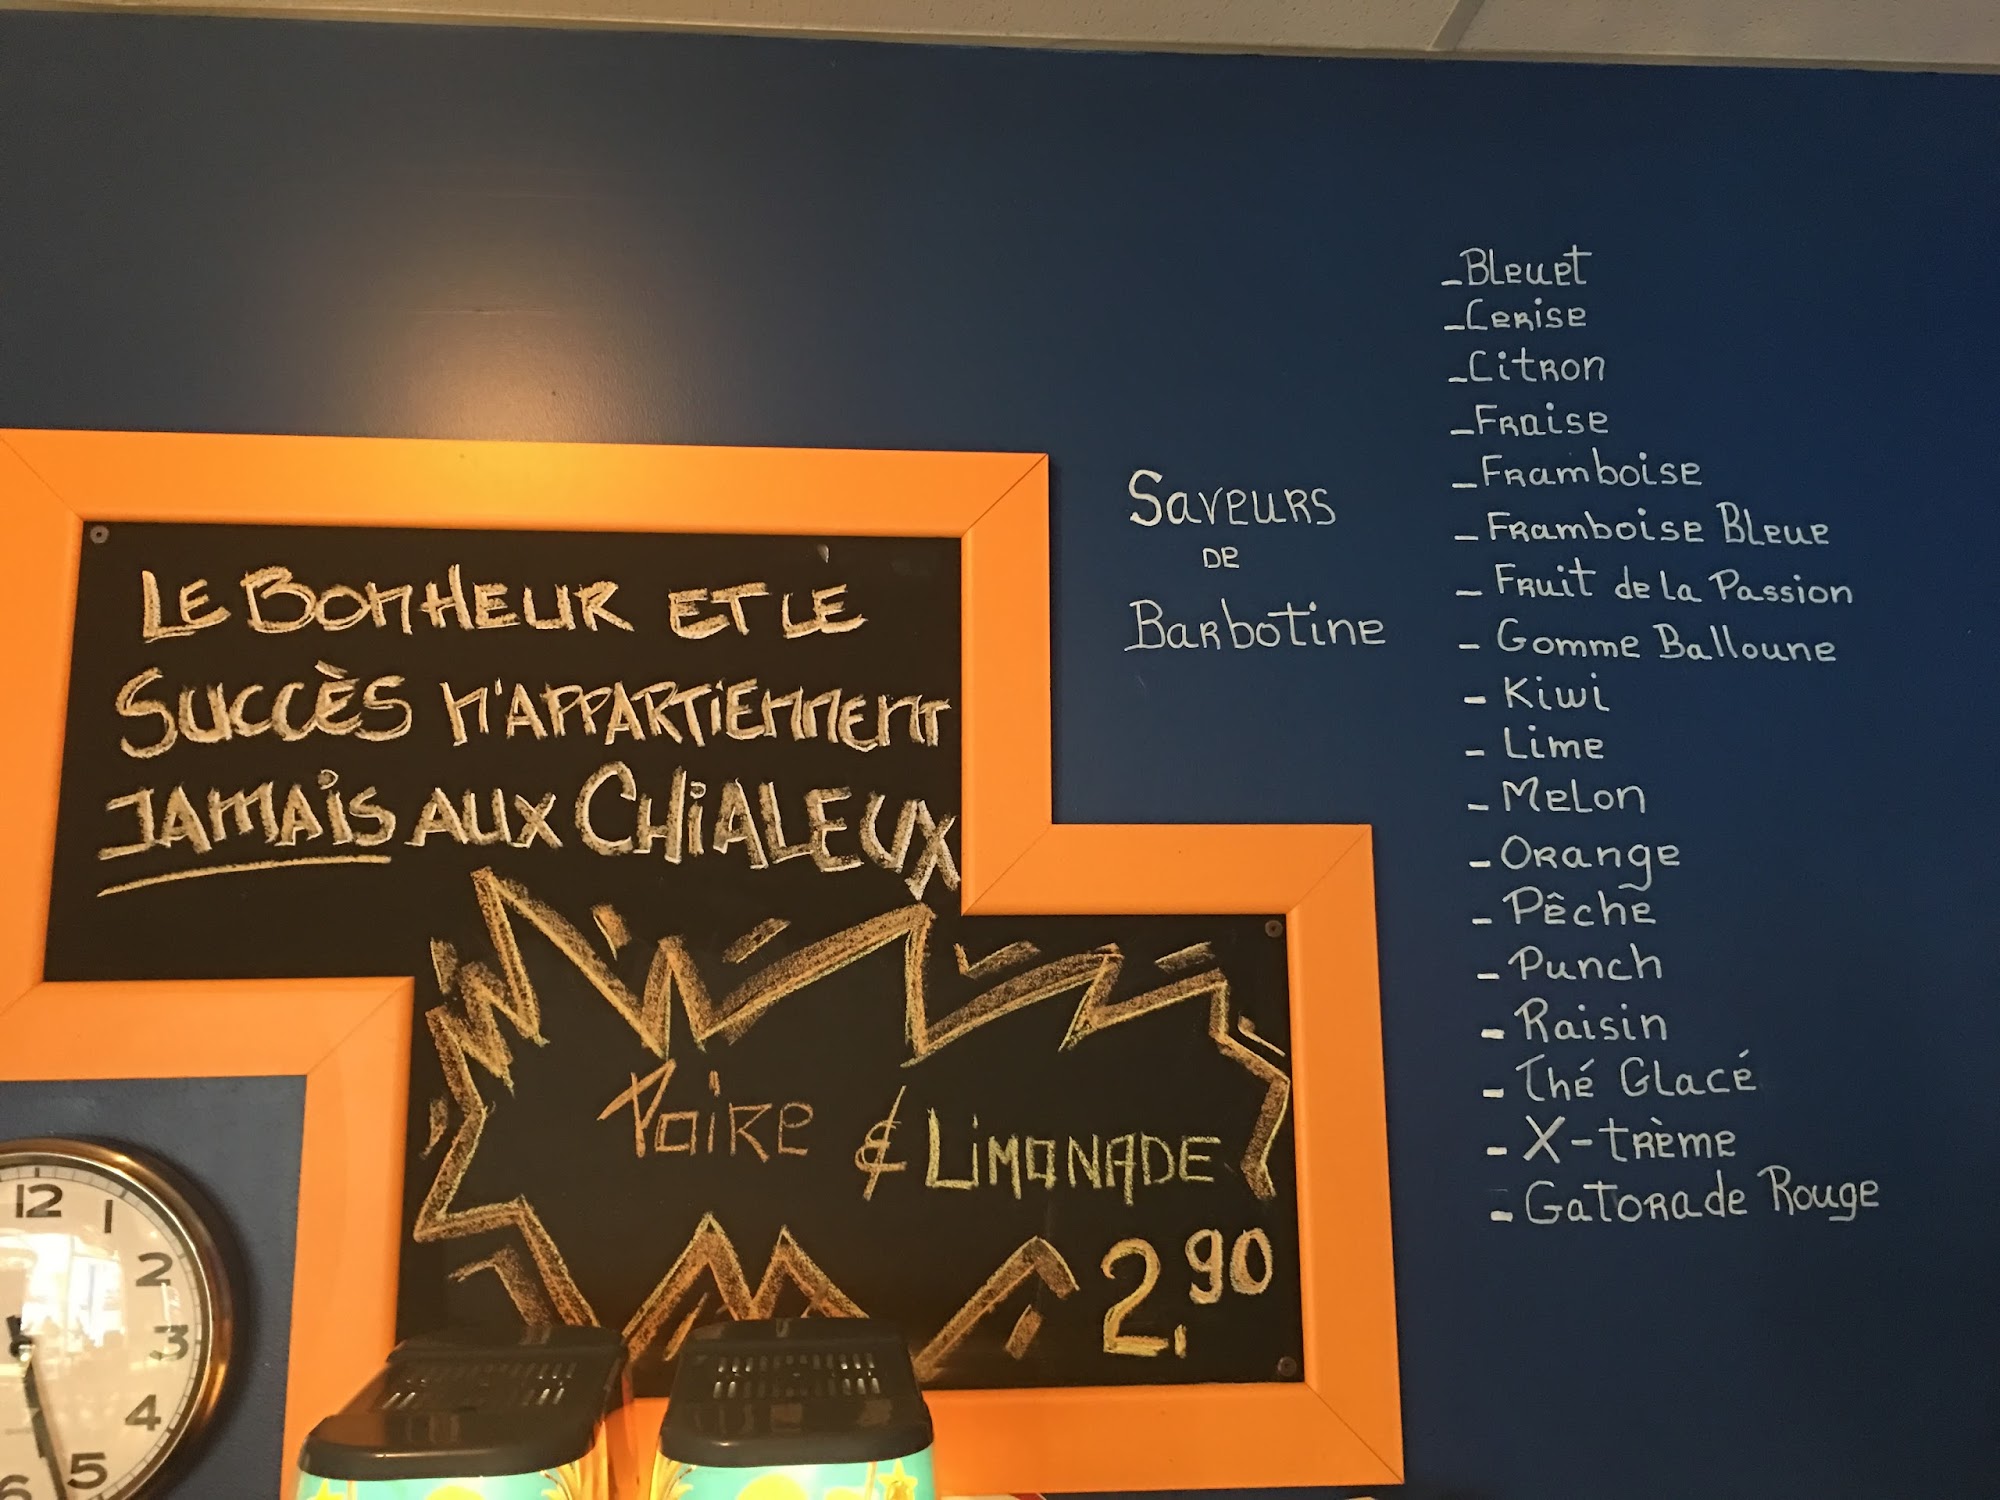 LE BONHEUR ET LE
SUCCÈS N'APPARTIENNENT
JAMAIS AUX CHIALEUX
Poire & LIMONADE
2,90
Saveurs
de
Barbotine
- Bleuet
- Cerise
- Citron
- Fraise
- Framboise
- Framboise Bleue
- Fruit de la Passion
- Gomme Balloune
- Kiwi
- Lime
- Melon
- Orange
- Pêche
- Punch
- Raisin
- Thé Glacé
- X-trème
- Gatorade Rouge
12
1
2
3
4
5
6